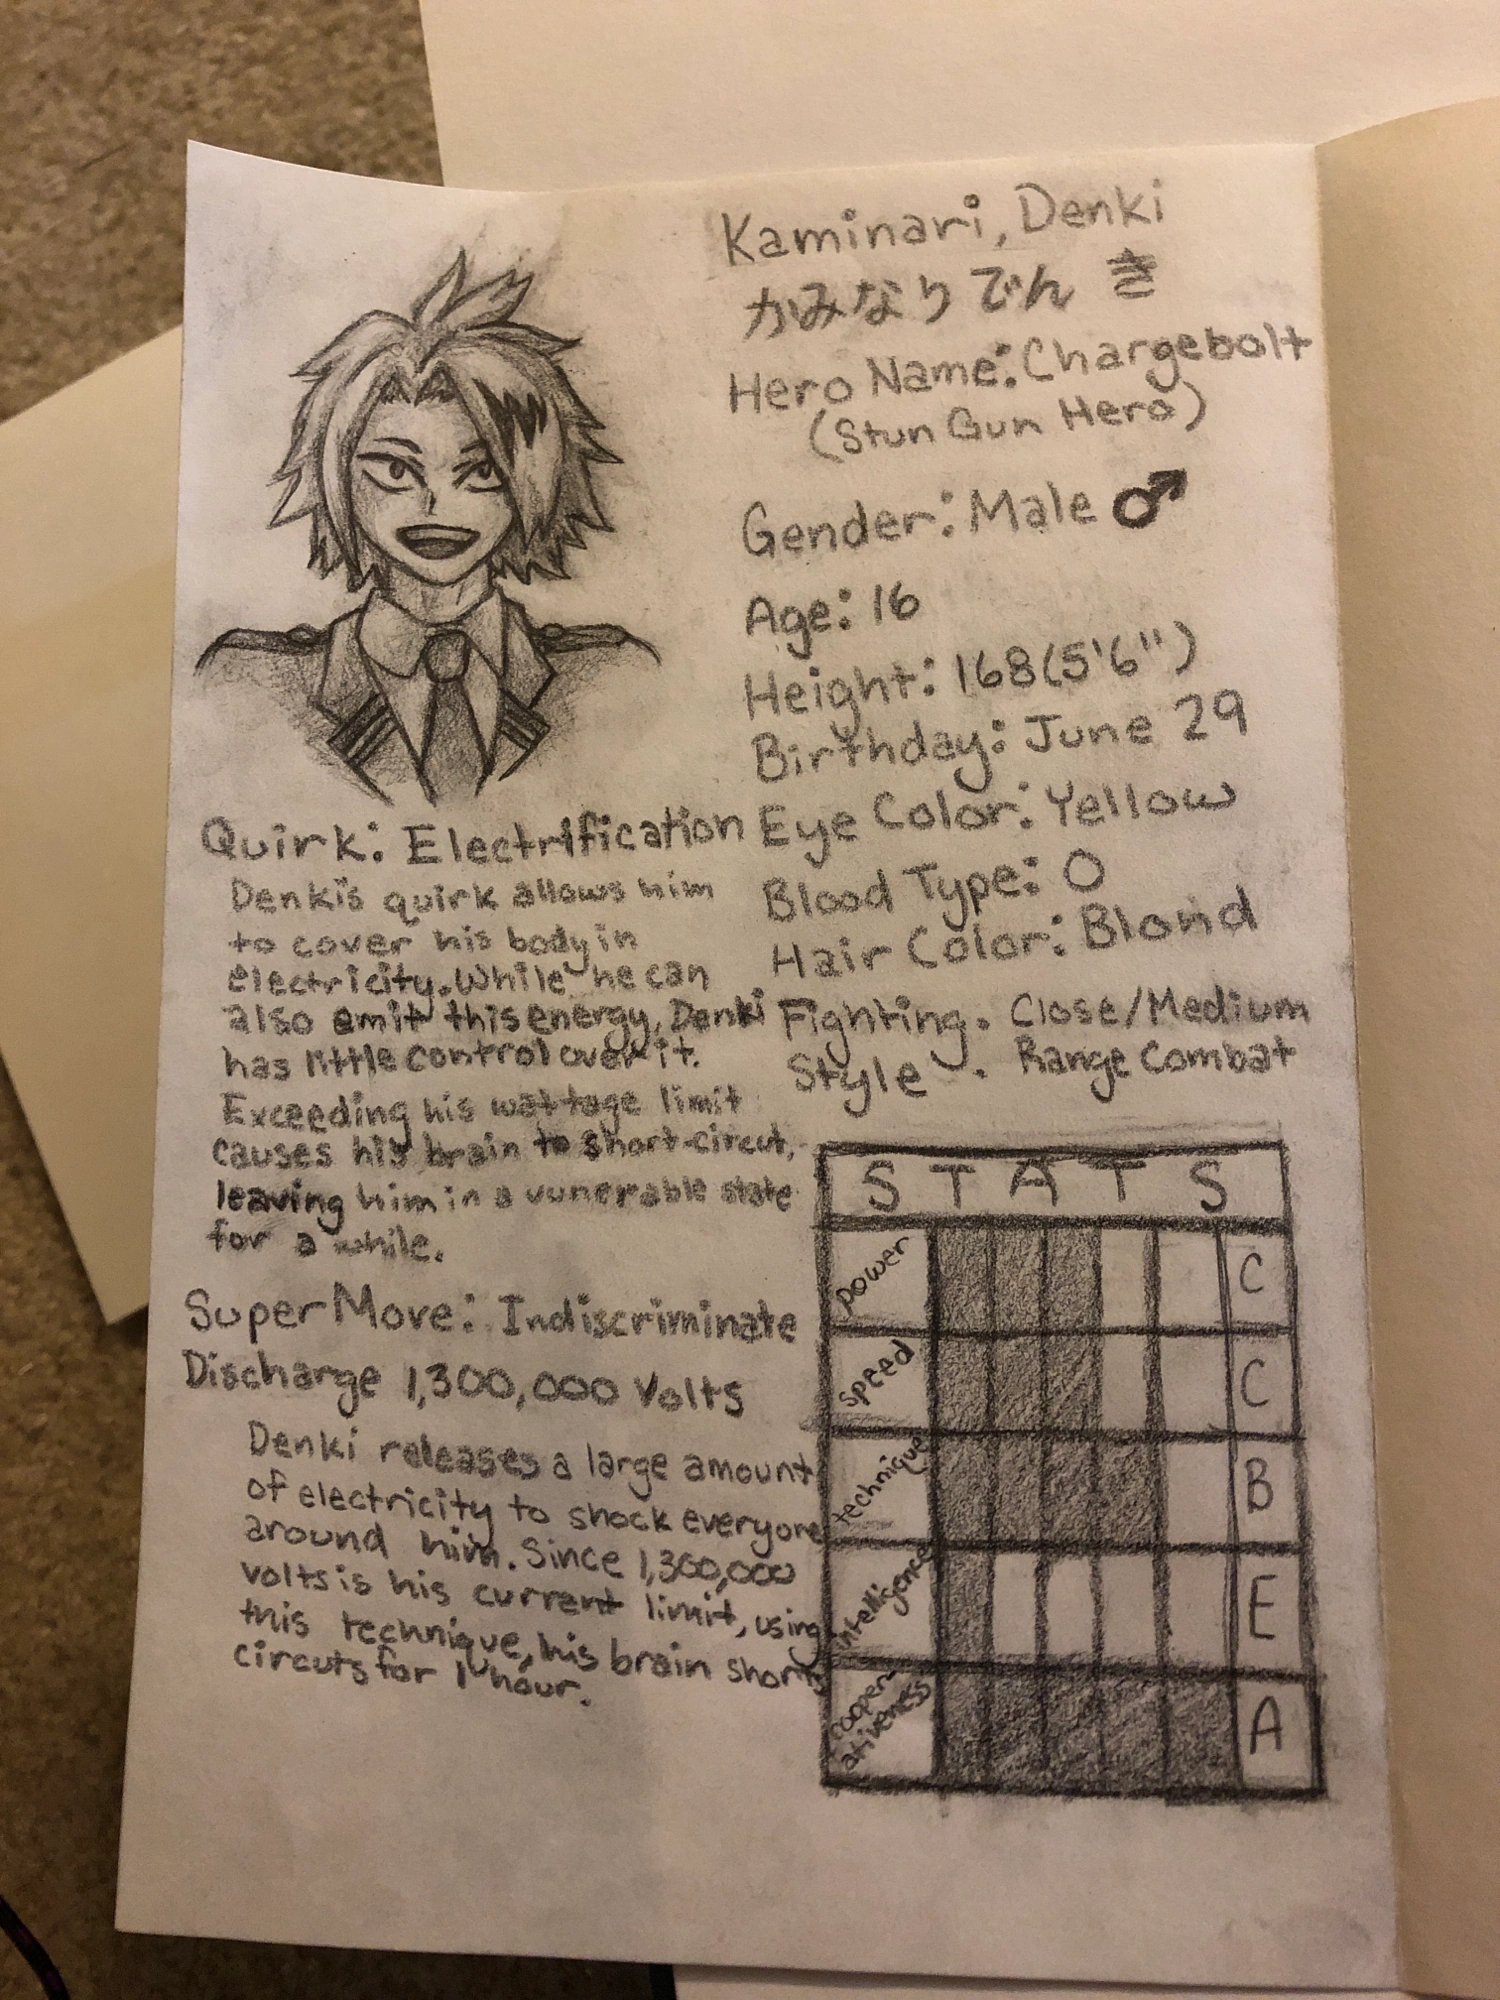 Kaminari, Denki
かみなりでんき
Hero Name: Chargebolt
(Stun Gun Hero)
Gender: Male ♂
Age: 16
Height: 168(5'6")
Birthday: June 29
Eye Color: Yellow
Blood Type: O
Hair Color: Blond
Fighting Style: Close/Medium
Range Combat
Quirk: Electrification
Denki's quirk allows him
to cover his body in
electricity. While he can
also emit this energy, Denki
has little control over it.
Exceeding his wattage limit
causes his brain to short-circut,
leaving him in a vunerable state
for a while.
Super Move: Indiscriminate
Discharge 1,300,000 Volts
Denki releases a large amount
of electricity to shock everyone
around him. Since 1,300,000
volts is his current limit, using
this technique, his brain short
circuts for 1 hour.
STATS
power C
speed C
technique B
intelligence E
cooper-
ativeness A